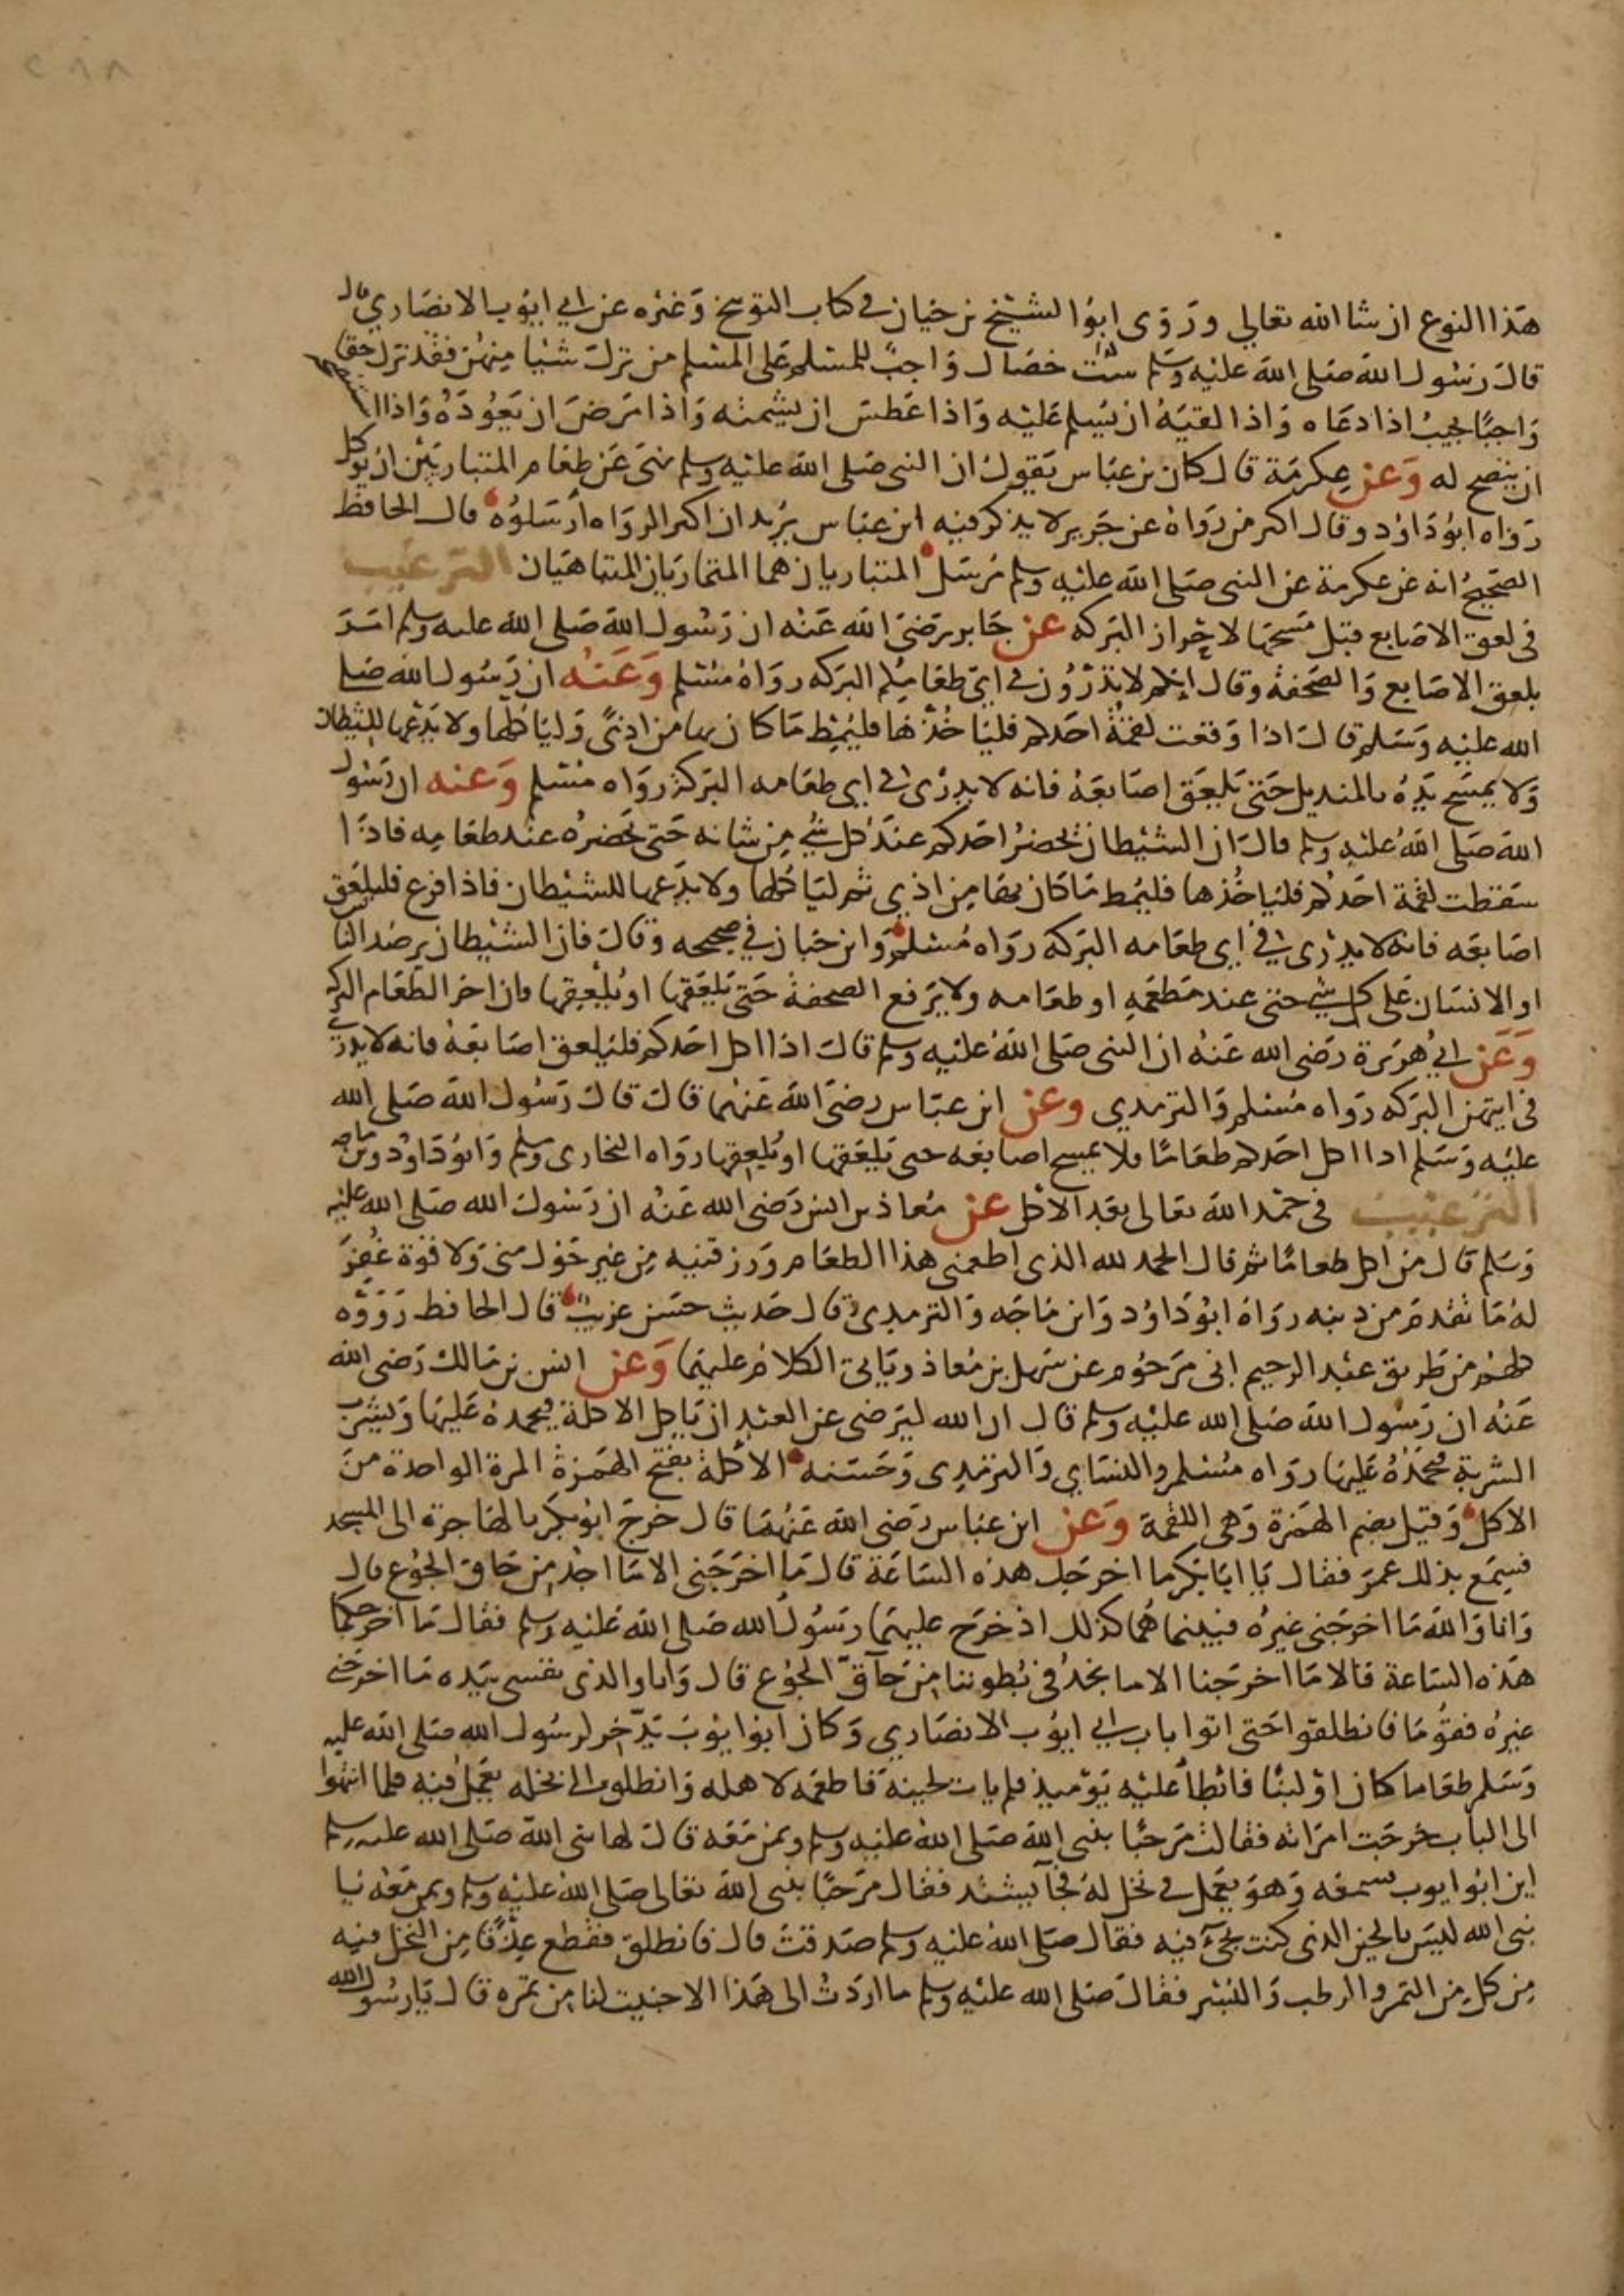 ٢٨٨
هذا النوع ان شا الله تعالي وروى ابو الشيخ بن حيان في كتاب التوبيخ وغيره عن ابي ايوب الانصاري قال
قال رسول الله صلى الله عليه وسلم ست خصال واجب للمسلم على المسلم من ترك شيا منهن فقد ترك حقا
واجبا يجيب اذا دعاه واذا لقيه ان يسلم عليه واذا عطس ان يشمته واذا مرض ان يعوده واذا استنصحه
ان ينصح له وعن عكرمة قال كان بن عباس يقول ان النبي صلى الله عليه وسلم نهى عن طعام المتباريين ان يوكل
رواه ابو داود وقال اكثر من رواه عن جرير لا يذكر فيه ابن عباس يريد ان اكثر الرواه ارسلوه قال الحافظ
الصحيح انه عن عكرمة عن النبي صلى الله عليه وسلم مرسل المتباريان هما المتماريان المتباهيان الترغيب
في لعق الاصابع قبل مسحها لاحراز البركه عن جابر رضى الله عنه ان رسول الله صلى الله عليه وسلم امر
بلعق الاصابع والصحفة وقال انكم لا تدرون في اي طعامكم البركه رواه مسلم وعنه ان رسول الله صلى
الله عليه وسلم قال اذا وقعت لقمة احدكم فلياخذها فليمط ما كان بها من اذى ولياكلها ولا يدعها للشيطان
ولا يمسح يده بالمنديل حتى يلعق اصابعه فانه لا يدرى في اي طعامه البركة رواه مسلم وعنه ان رسول
الله صلى الله عليه وسلم قال ان الشيطان يحضر احدكم عند كل شي من شانه حتى يحضره عند طعامه فاذا
سقطت لقمة احدكم فلياخذها فليمط ما كان بها من اذي ثم لياكلها ولا يدعها للشيطان فاذا فرغ فليلعق
اصابعه فانه لا يدرى في اي طعامه البركه رواه مسلم وابن حبان في صحيحه وقال فان الشيطان يرصد الناس
او الانسان على كل شي حتى عند مطعمه او طعامه ولا يرفع الصحفة حتى يلعقها او يلعقها فان اخر الطعام البركه
وعن ابي هريرة رضى الله عنه ان النبي صلى الله عليه وسلم قال اذا اكل احدكم فليلعق اصابعه فانه لا يدري
في ايتهن البركه رواه مسلم والترمدي وعن ابن عباس رضى الله عنهما قال قال رسول الله صلى الله
عليه وسلم اذا اكل احدكم طعاما فلا يمسح اصابعه حتى يلعقها او يلعقها رواه البخارى ومسلم وابو داود وبن ماجه
الترغيب في حمد الله تعالى بعد الاكل عن معاذ بن انس رضى الله عنه ان رسول الله صلى الله عليه
وسلم قال من اكل طعاما ثم قال الحمد لله الذى اطعمني هذا الطعام ورزقنيه من غير حول مني ولا قوة غفر
له ما تقدم من دنبه رواه ابو داود وابن ماجه والترمدى وقال حديث حسن غريب قال الحافظ رووه
كلهم من طريق عبد الرحيم ابي مرحوم عن سهل بن معاذ وياتي الكلام عليهما وعن انس بن مالك رضى الله
عنه ان رسول الله صلى الله عليه وسلم قال ان الله ليرضى عن العبد ان ياكل الاكلة فيحمده عليها ويشرب
الشربة فيحمده عليها رواه مسلم والنساي والترمدى وحسنه الاكلة بفتح الهمزة المرة الواحدة من
الاكل وقيل بضم الهمزة وهى اللقمة وعن ابن عباس رضى الله عنهما قال خرج ابو بكر بالهاجرة الى المسجد
فسمع بذلك عمر فقال يا ابا بكر ما اخرجك هذه الساعة قال ما اخرجنى الا ما اجد من حاق الجوع قال
وانا والله ما اخرجنى غيره فبينما هما كذلك اذ خرج عليهما رسول الله صلى الله عليه وسلم فقال ما اخرجكما
هذه الساعة قالا ما اخرجنا الا ما نجد في بطوننا من حاق الجوع قال وانا والذى نفسى بيده ما اخرجنى
غيره فقوما فانطلقوا حتى اتوا باب ابي ايوب الانصاري وكان ابو ايوب يدخر لرسول الله صلى الله عليه
وسلم طعاما كان او لبنا فابطأ عليه يوميذ فلم يات لحينه فاطعمه لاهله وانطلق الى نخله يعمل فيه فلما انتهوا
الى الباب خرجت امراته فقالت مرحبا بنبى الله صلى الله عليه وسلم وبمن معه قال لها نبى الله صلى الله عليه وسلم
اين ابو ايوب فسمعه وهو يعمل في نخل له فجا يشتد فقال مرحبا بنبى الله تعالى صلى الله عليه وسلم وبمن معه يا
نبي الله ليس بالحين الذى كنت تجئ فيه فقال صلى الله عليه وسلم صدقت قال فانطلق فقطع عذقا من النخل فيه
من كل من التمر والرطب والبسر فقال صلى الله عليه وسلم ما اردت الى هذا الا جنيت لنا من تمره قال يا رسول الله